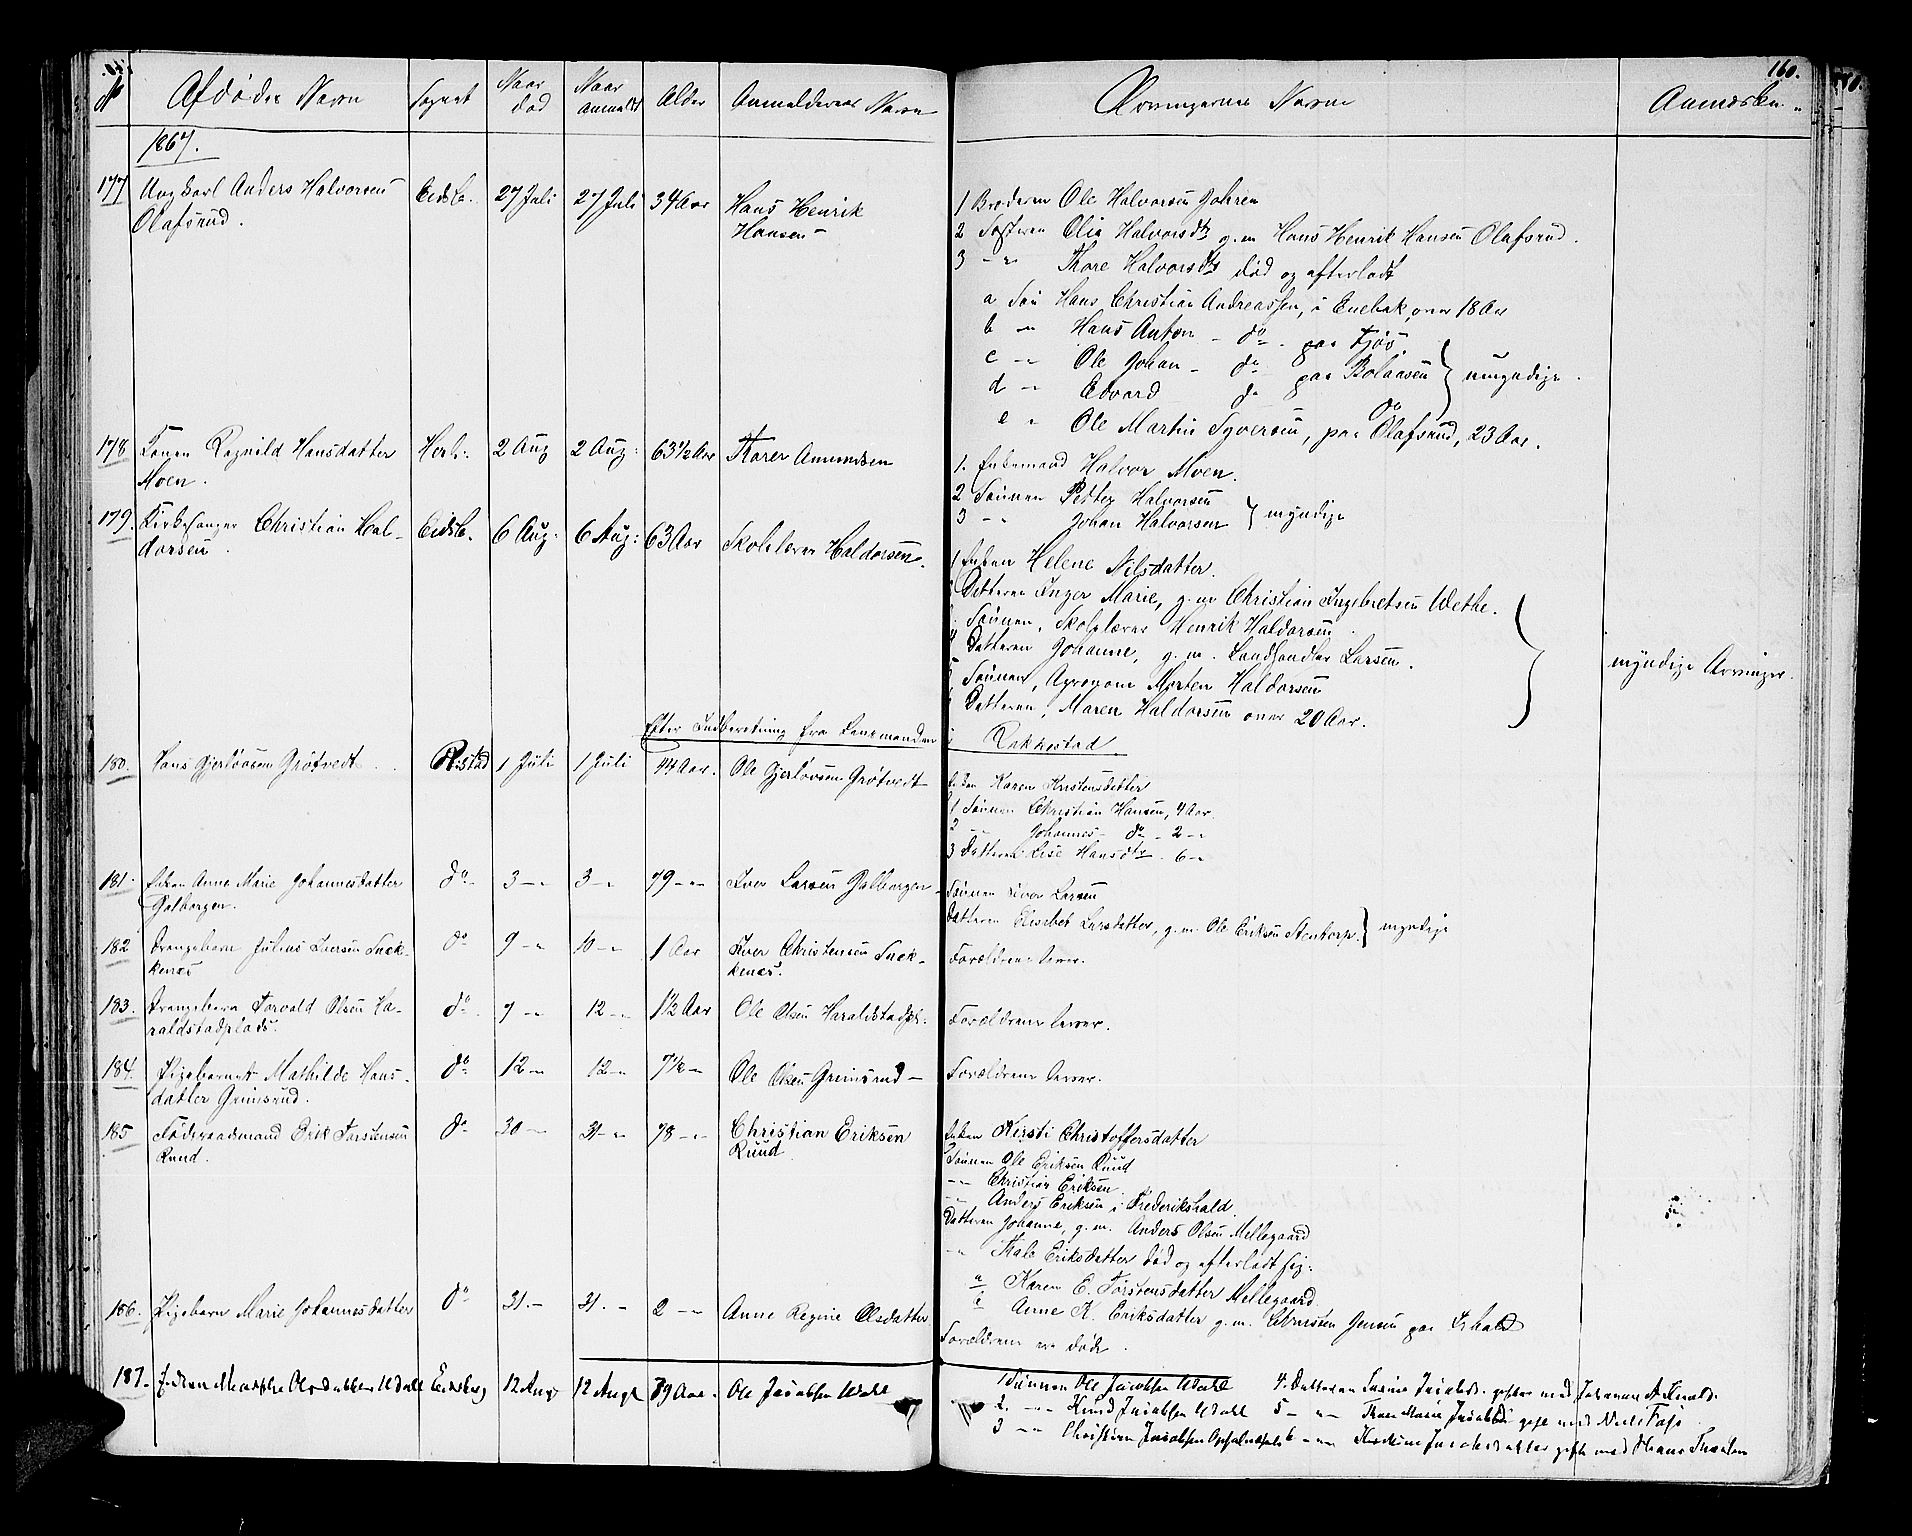 160.
No Afdødes Navn Sognet Naar død Naar anmeldt Alder Anmelderens Navn Arvingernes Navne Anmærkn.
1867.
177 Ungkarl Anders Halvorsen Eidsb. 27 Juli 27 Juli 34 Aar Hans Henrik
Olafsrud. Hansen
1 Broderen Ole Halvorsen
2 Søsteren Olia Halvorsdtr g. m Hans Henrik Hansen Olafsrud.
3 -"- Thore Halvorsdtr død og efterladt
a Søn Hans Christian Andreassen, i Enebak, over 18 Aar
b -"- Hans Anton - do - paa
c -"- Ole Johan - do paa } umyndige.
d -"- Edvard do do
e " Ole Martin Syversen, paa Olafsrud, 23 Aar.
178 Konen Ragnild Hansdatter Herl. 2 Aug 2 Aug: 63 1/2 Aar Thorer Amundsen
Moen.
1. Enkemand Halvor Moen.
2 Sønnen Petter Halvorsen
3 -"- Johan Halvorsen } myndige
179. Kirkesanger Christian Hal- Eidsb. 6 Aug. 6 Aug: 63 Aar Skolelærer Haldorsen.
dorsen.
1 Enken Helene Nilsdatter.
Datteren Inger Marie, g. m Christian Ingebretsen Wethe.
Sønnen, Skolelærer Henrik Haldorsen.
4 Datteren Johanne, g. m. Landhandler Larsen.
5 Sønnen, Agronom Morten Haldorsen
Datteren, Maren Haldorsen over 20 Aar. } myndige Arvinger.
Efter Indberetning fra Lensmanden i Rakkestad.
180. Hans Gjerløvsen Grøtvedt R.stad 1 Juli 1 Juli 44 Aar. Ole Gjerløvsen Grøtvedt
Enken Karen Kristensdatter
1 Sønnen Christian Hansen, 4 Aar.
2 -"- Johannes - do - 2 -"-
3 Datteren Lise Hansdtr. 6 -"-
181. Enken Anne Marie Johannesdatter do 3 -"- 3 -"- 79 -"- Iver Larsen
Sønnen Iver Larsen
Datteren Elisebet Larsdatter, g. m. Ole Eriksen Stentorp. } myndige
182 Drengebarn Julius Iversen do 9 -"- 10 -"- 1 Aar Iver Christensen
Forældrene lever.
183. Drengebarn Torvald Olsen Ha- do 7 -"- 12 -"- 1 1/2 Aar Ole Olsen Haraldstadpl.
raldstadplads.
Forældrene lever.
184. Pigebarnet Mathilde Hans- do 12 -"- 12 -"- 7 1/2 -"- Ole Olsen Grimsrud
datter Grimsrud.
Forældrene lever.
185 Føderaadsmand Erik Torstensen do 30 -"- 31 -"- 78 -"- Christian Eriksen
Ruud. Ruud
Enken Kirsti Christoffersdatter
Sønnen Ole Eriksen Ruud
-"- Christian Eriksen
-"- Anders Eriksen i Frederikshald.
Datteren Johanne, g. m. Anders Olsen Mellegaard
-"- Eriksdatter død og efterladt sig:
a Karen E. Torstensdatter Mellegaard.
Anne K. Eriksdatter g. m. Jensen paa
186. Pigebarn Marie Johannesdatter do 31 -"- 31 -"- 2 -"- Anne Regine Olsdatter
Forældrene er døde.
187. Enken Marthe Olsdatter Eidsberg 12 Aug 12 Augt 79 Aar. Ole Jacobsen
1 Sønnen Ole Jacobsen 4. Datteren Jacobsd. gifte med Johannes
2. -"- Knud Jacobsen 5 -"- -"- Marie Jacobsd gift med
3 -"- Christian Jacobsen 6 -"- Jacobsdatter gift med Hans